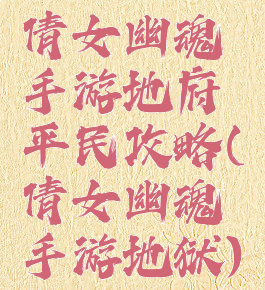 倩女幽魂
手游地府
平民攻略(
倩女幽魂
手游地狱)